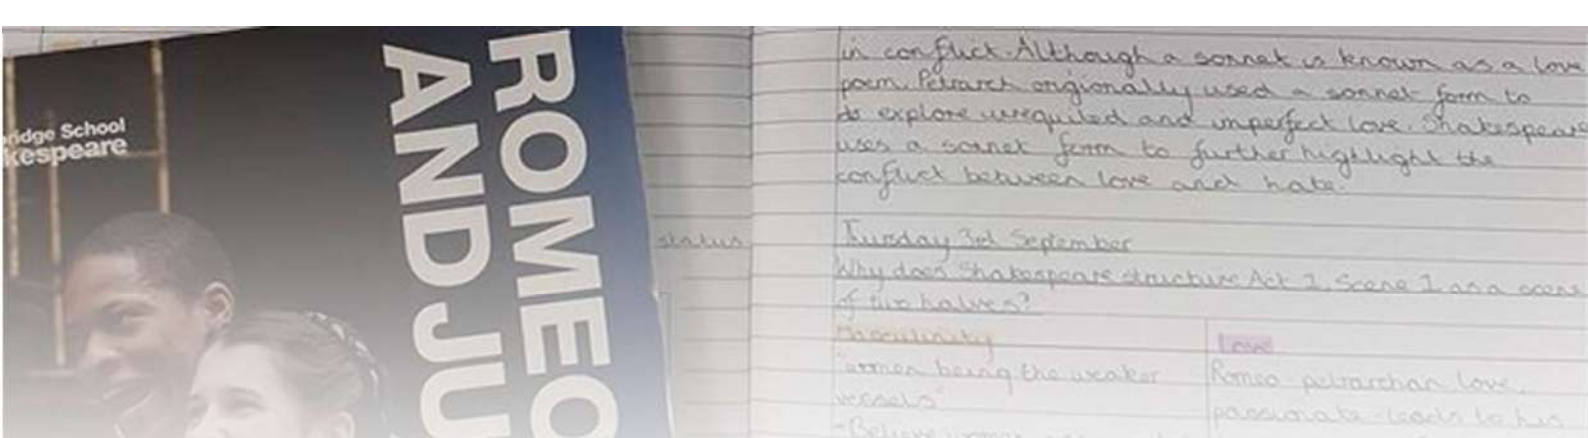 ROMEO
AND JU
ridge School
kespeare
status
in conflict. Although a sonnet is known as a love
poem, Petrarch origionally used a sonnet form to
to explore unrequited and imperfect love. Shakespeare
uses a sonnet form to further highlight the
conflict between love and hate.
Tuesday 3rd September
Why does Shakespeare structure Act 1, Scene 1 as a scene
of two halves?
Masculinity
"women being the weaker
vessels"
Love
Romeo petrarchan love,
passionate - leads to his